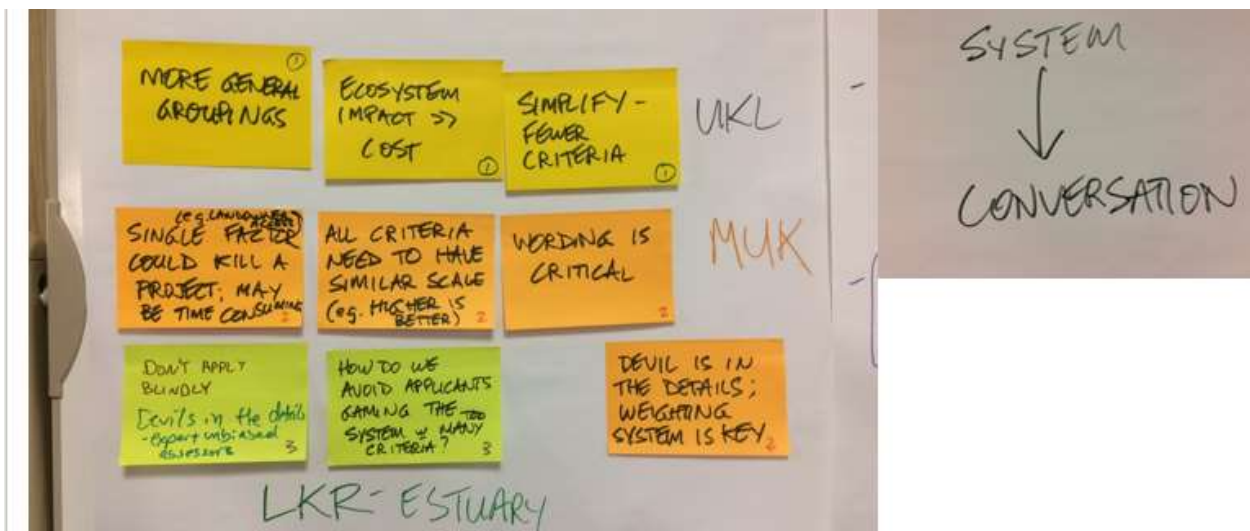 ①
MORE GENERAL
GROUPINGS
ECOSYSTEM
IMPACT >>
COST
①
SIMPLIFY -
FEWER
CRITERIA
①
UKL
(e.g. LANDOWNER
ACCESS)
SINGLE FACTOR
COULD KILL A
PROJECT; MAY
BE TIME CONSUMING
2
ALL CRITERIA
NEED TO HAVE
SIMILAR SCALE
(e.g. HIGHER IS
BETTER) 2
WORDING IS
CRITICAL
2
MUK
DON'T APPLY
BLINDLY
Devil's in the detail
- expert unbiased
assessors
3
HOW DO WE
AVOID APPLICANTS
GAMING THE
SYSTEM w TOO MANY
CRITERIA?
3
DEVIL IS IN
THE DETAILS;
WEIGHTING
SYSTEM IS KEY 2
LKR - ESTUARY
SYSTEM
CONVERSATION